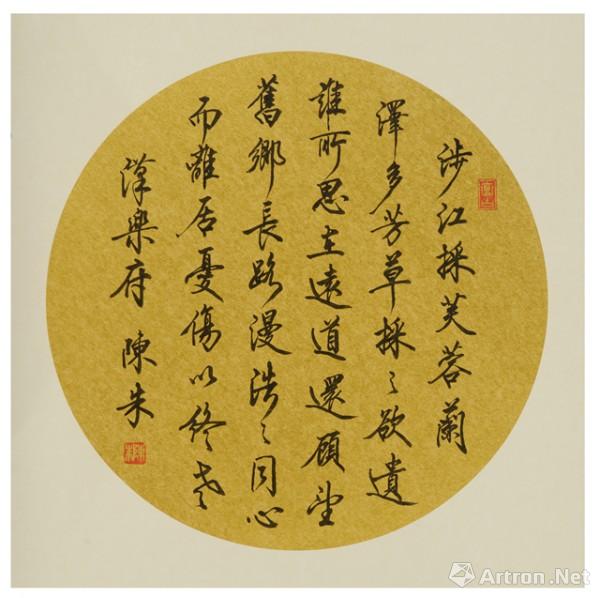 涉江採芙蓉蘭
澤多芳草採之欲遺
誰所思在遠道還顧望
舊鄉長路漫浩〻同心
而離居憂傷以終老
漢樂府 陳朱
Artron.Net